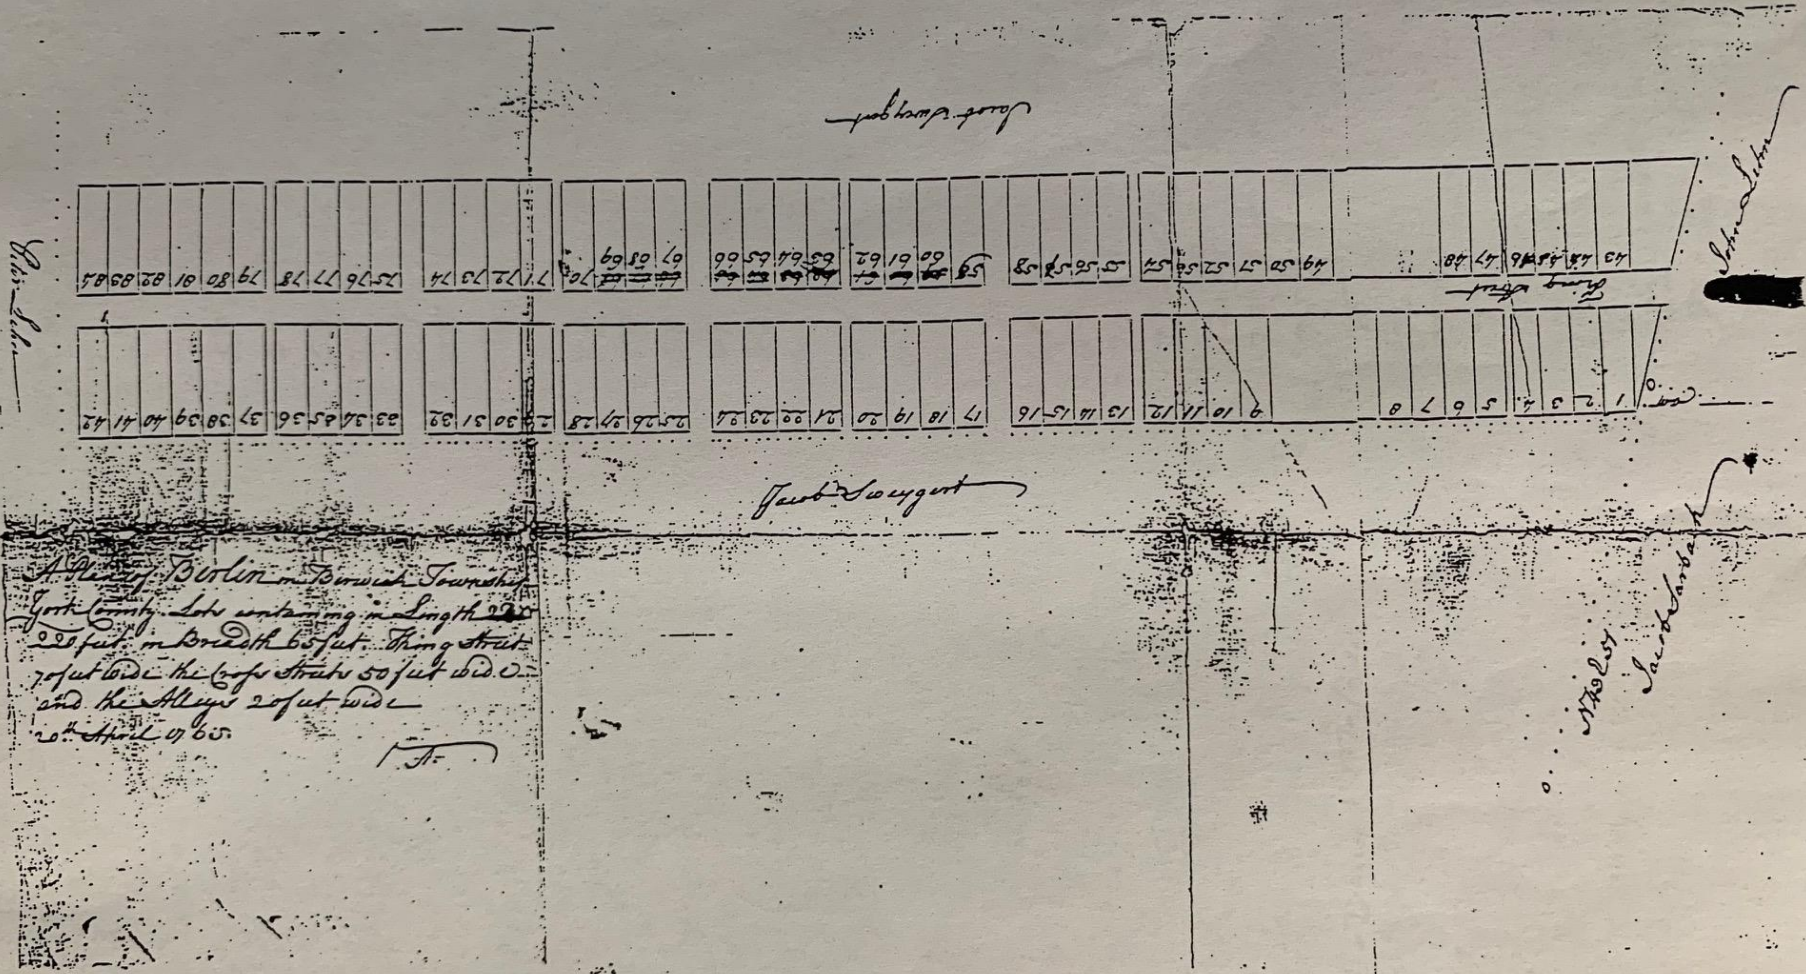 Jacob Sweygert
84 83 82 81 80 79 78 77 76 75 74 73 72 71 70 69 68 67 66 65 64 63 62 61 60 59 58 56 55 54 52 51 50 49 48 47 46 43
King Street
42 41 40 39 38 37 36 35 34 33 32 31 30 28 27 26 25 24 23 22 21 20 19 18 17 16 15 14 13 12 11 10 9 8 7 6 5 4 3 2 1
Jacob Sweygert
A Plan of Berlin in Berwick Township
York County. Lots containing in Length
220 feet in Breadth 65 feet. King Street
70 feet wide the Cross Streets 50 feet wide
and the Alleys 20 feet wide
20th April 1765.
Peter
John
Jacob Sarbach